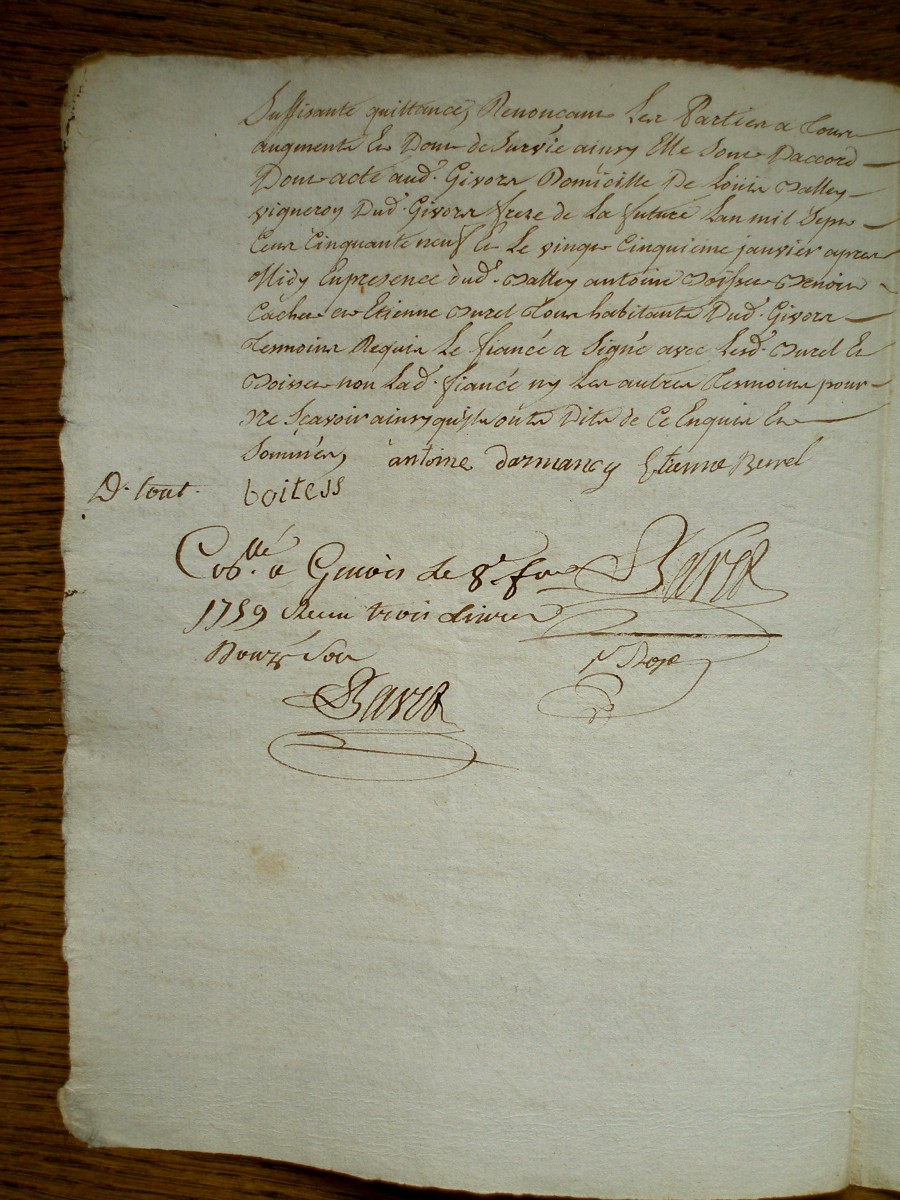 Suffisante quittance, Renoncant Les Parties a Tous
augments et Dons de Survie ainsy Elle Sont Daccord
Dont acte aud. Givors Domicille De Loüis
vigneron Dud. Givors frere de La future Lan mil Sept
Cens Cinquante neuf Et Le vingt Cinquieme janvier apres
Midy En presence dud. antoine Benoit
et Etienne Burel Tous habitants Dud. Givors
Tesmoins Requis Le fiancé a Signé avec Lesd. Burel Et
non Lad. fiancée ny Les autres Tesmoins pour
ne Scavoir ainsy quils ont Dits de Ce Enquis Et
Sommés, antoine darmancy Etienne Burel
D. tout. boitess
Con.llé a Givors Le 8e. fev
1759 Recu trois Livres
Douze Sols